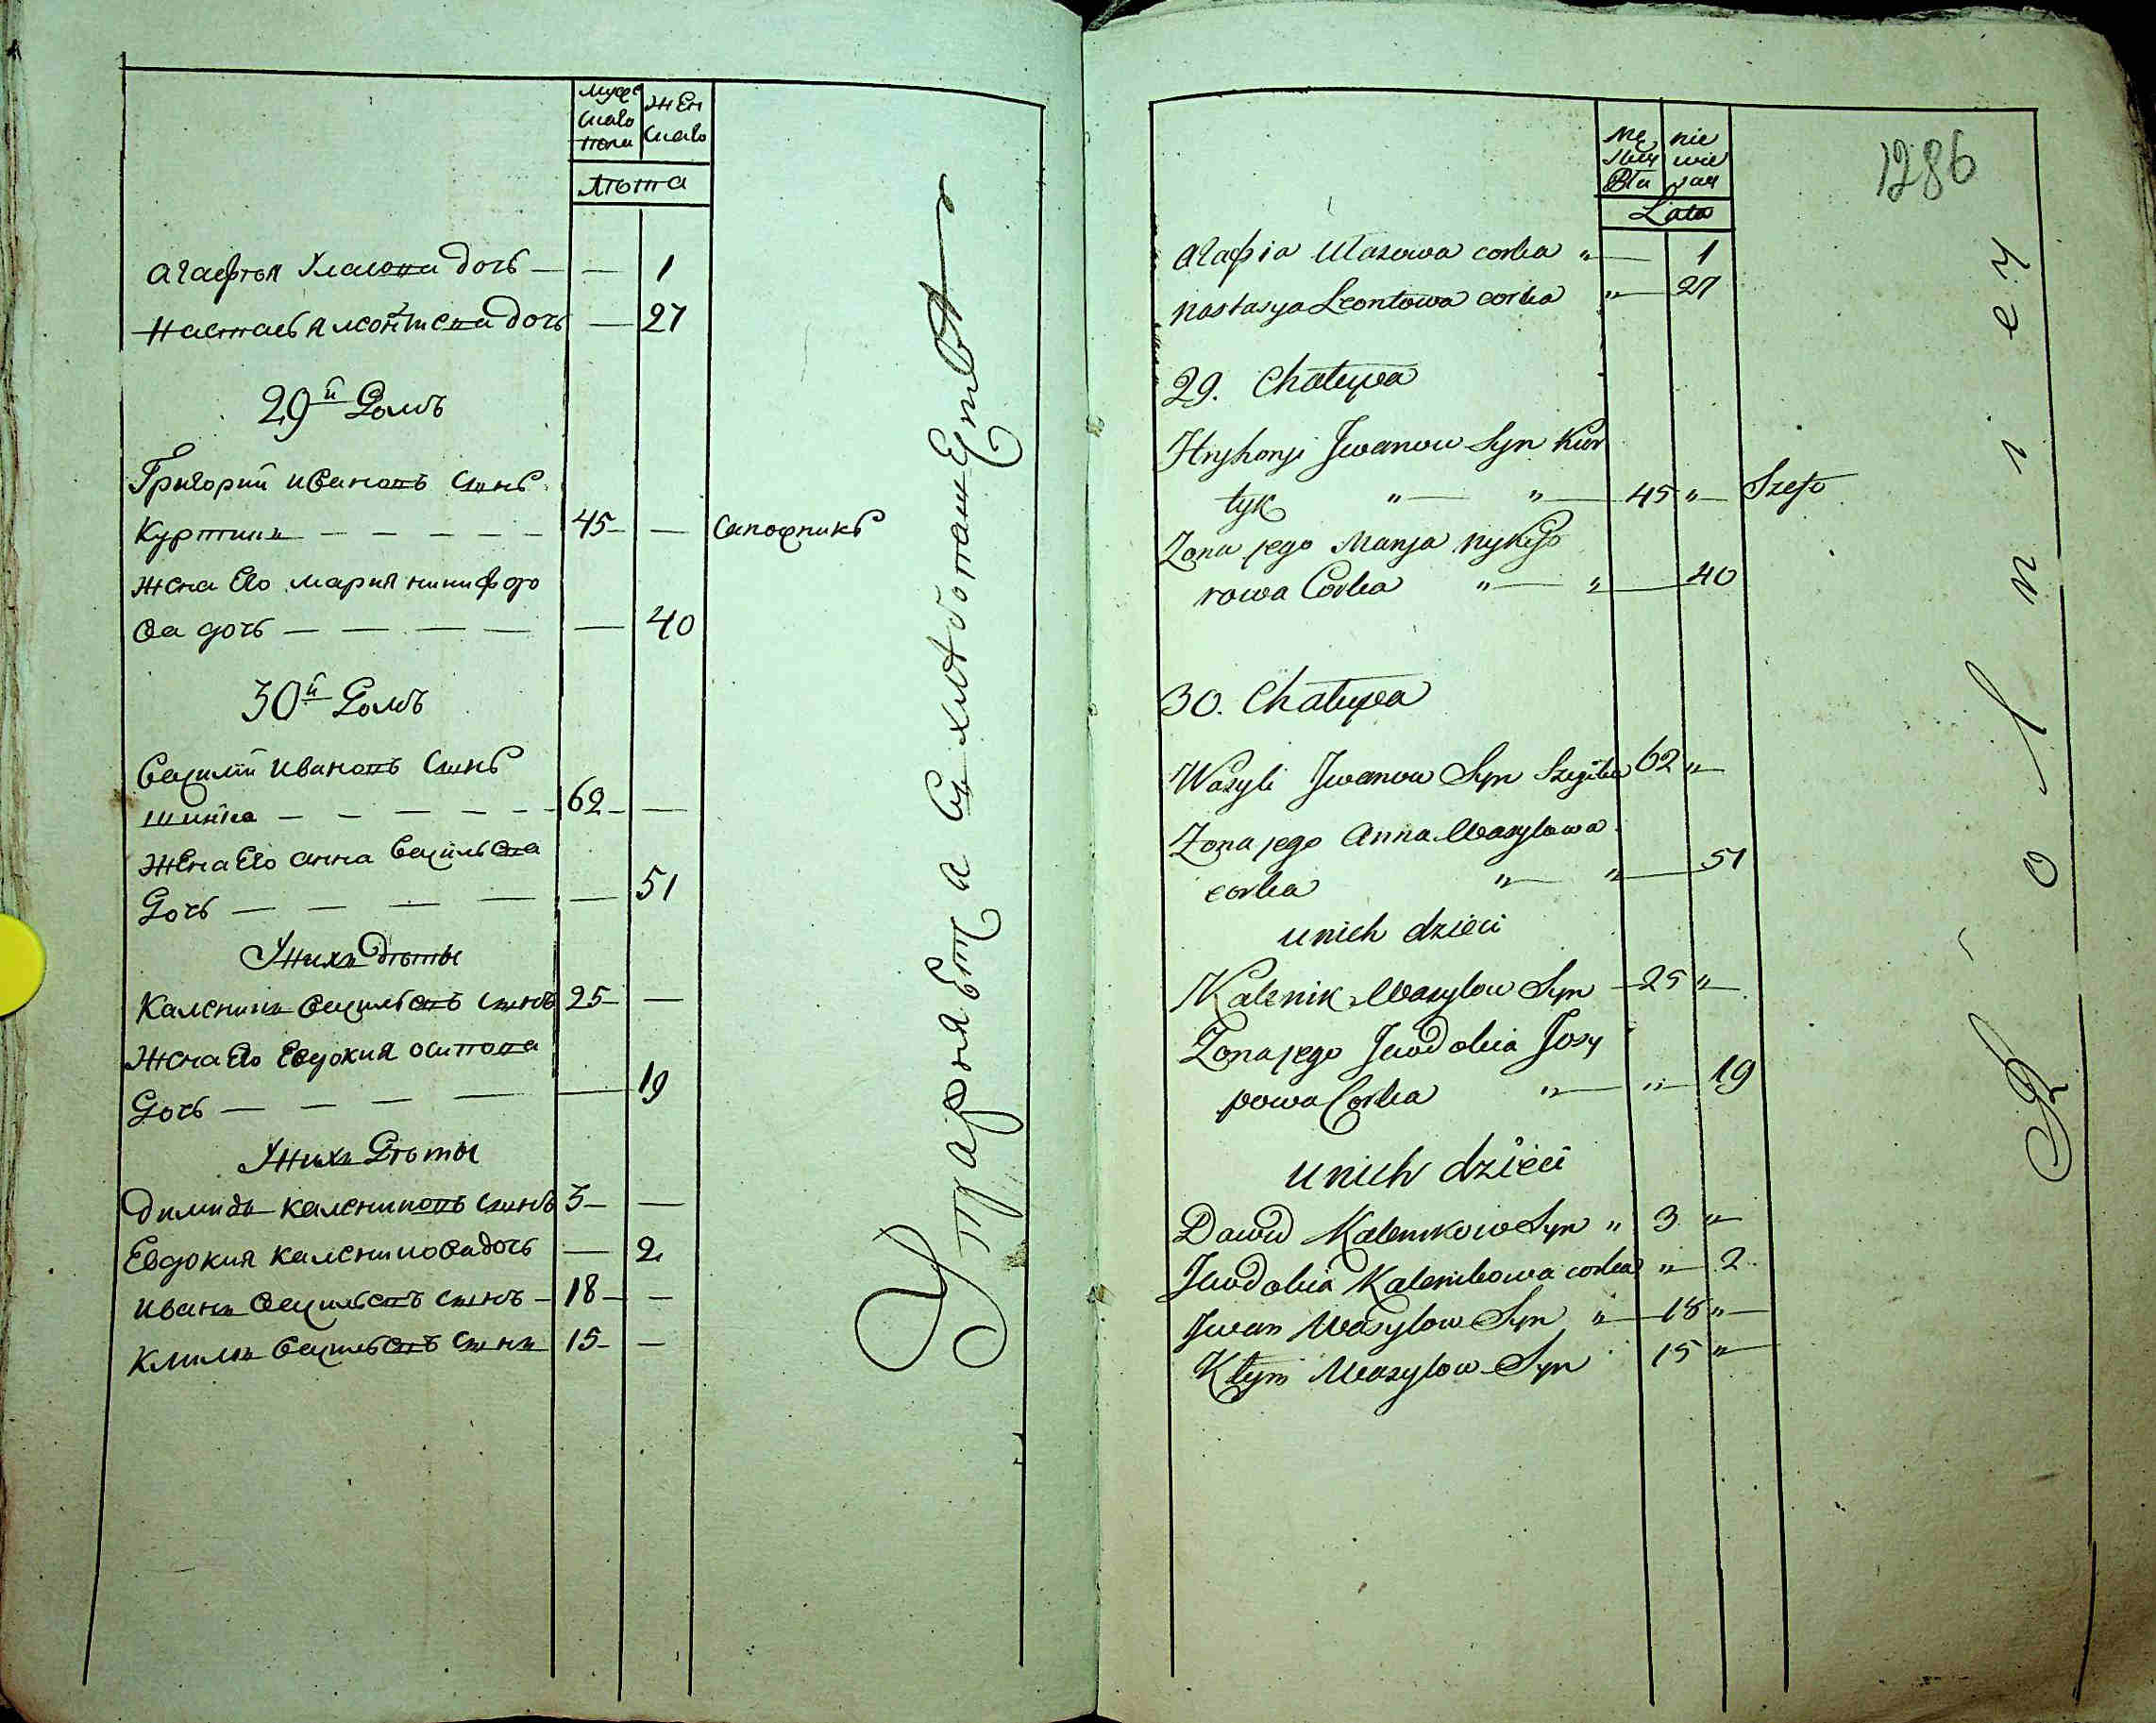 мужескаго пола
женскаго
лѣта
Агафія Уласова дочь — — 1
Настасья леонтиева дочь — 27
29й Домъ
Григорий Ивановъ сынъ
Куртикъ — — — — — 45 —
сапожникъ
жена Его мария никифоро
ва дочь — — — — — 40
30й Домъ
Василій Ивановъ сынъ
— — — — — 62 —
жена Его анна васильева
Дочь — — — — — 51
У нихъ дѣты
Каленикъ васильевъ сынъ 25 —
жена Его Евдокия осипова
Дочь — — — — — 19
У нихъ Дѣты
димидъ калениковъ сынъ 3 —
Евдокия каленикова дочь — 2
иванъ васильевъ сынъ — 18 —
Климъ васильевъ сынъ 15 —
Упаряетца Схлѣбопашества
1286
męskiey Płci
niewieściey
Lata
Агафіа Ułasowa corka „ — 1
Nastasya Leontowa corka „ — 27
29. Chałupa
Hryhoryi Jwanow Syn Kur
tyk „ — „ — 45 „ —
Zona jego Marya Nykifo
rowa Corka „ — „ — 40
30. Chałupa
Wasyli Jwanow Syn 62 „ —
Zona jego Anna Wasylowa
corka „ — „ — 51
u nich dzieci
Kalenik Wasylow Syn — 25 „ —
Zona jego Jewdokia Josy
powa Corka „ — „ — 19
u nich dzieci
Dawid Kalenikow Syn „ 3 „ —
Jewdokia Kalenikowa corka „ — 2
Jwan Wasylow Syn „ — 18 „ —
Kłym Wasylow Syn 15 „ —
Rolniey